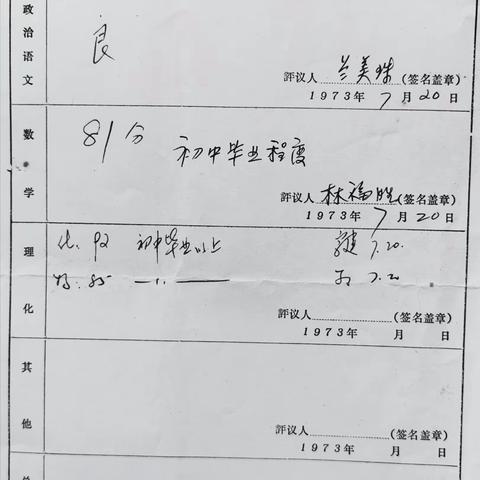 政治语文
良
評议人 兰美珠 (签名盖章)
1973年 7 月 20 日
数学
81分 初中毕业程度
評议人 林福胜 (签名盖章)
1973年 7 月 20 日
理化
化. 92 初中毕业以上 7.20.
物. 85 —〃— 7.20
評议人 (签名盖章)
1973年 月 日
其他
評议人 (签名盖章)
1973年 月 日